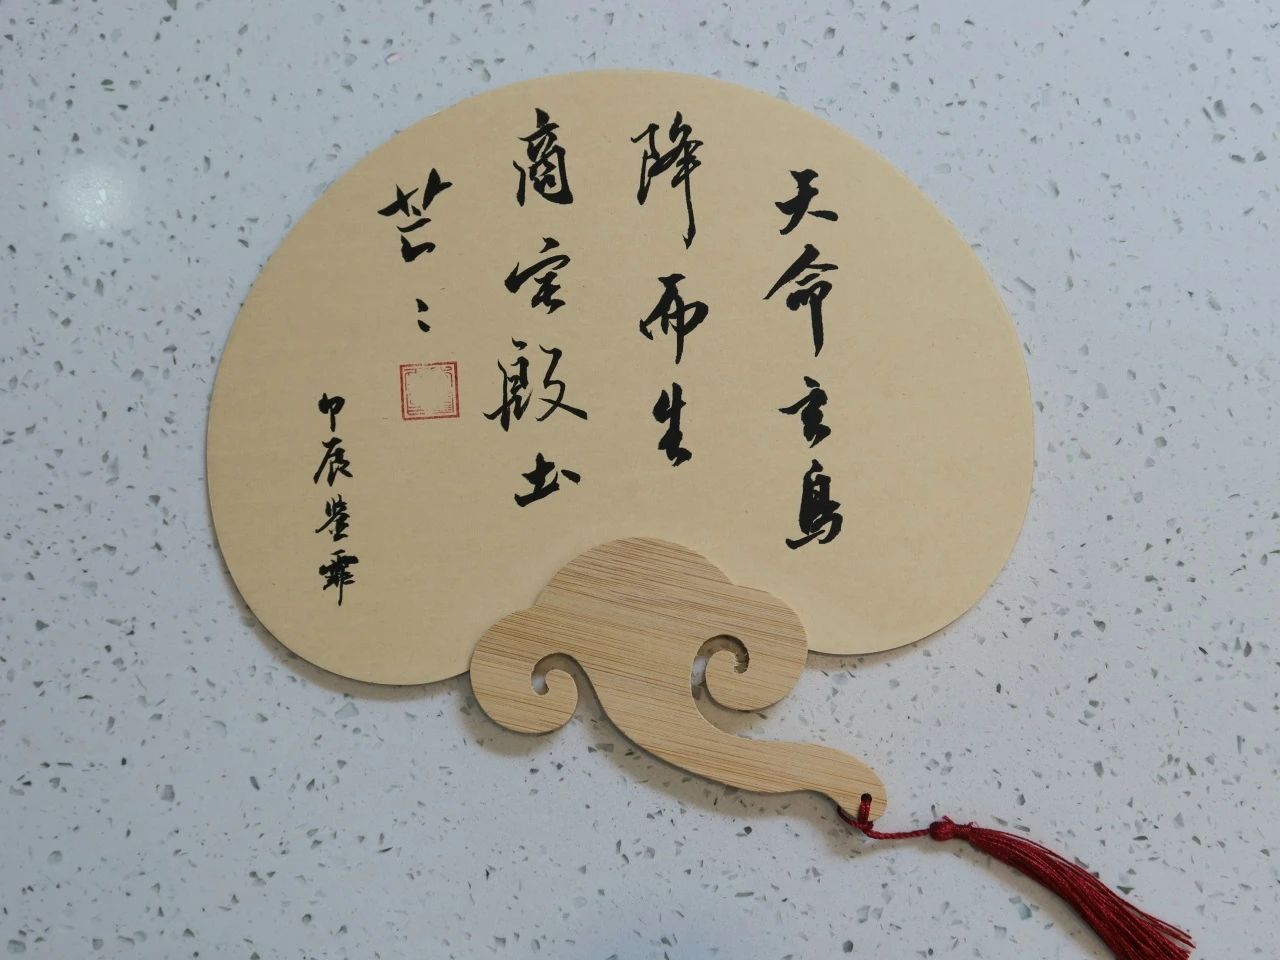 天命玄鳥
降而生
商宅殷土
芒〻
甲辰蓥霏